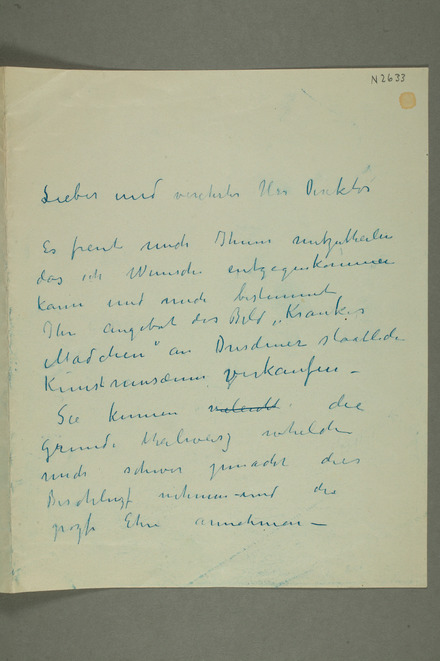 N 2633
Lieber und verehrter Herr Direktor
Es freut mich Ihnen mitzutheilen
das ich Wunsche entgegenkommen
kann und mich bestimmt
Ihr angebot das Bild „Krankes
Mädchen" an Dresdener staatliche
Kunstmuseum verkaufen –
Sie kennen die
Grunde theilweise
mich schwer gemacht dies
Beschlugs nehmen und die
Ehre annehmen –